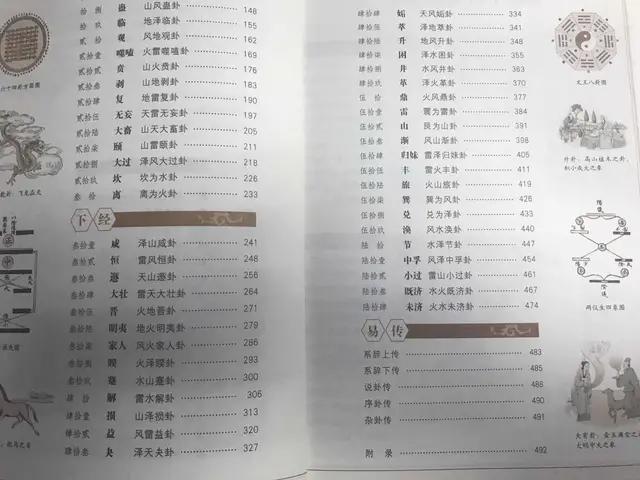 拾捌 蛊 山风蛊卦 148
拾玖 临 地泽临卦 155
贰拾 观 风地观卦 162
贰拾壹 噬嗑 火雷噬嗑卦 169
贰拾贰 贲 山火贲卦 176
贰拾叁 剥 山地剥卦 183
贰拾肆 复 地雷复卦 190
贰拾伍 无妄 天雷无妄卦 197
贰拾陆 大畜 山天大畜卦 205
贰拾柒 颐 山雷颐卦 211
贰拾捌 大过 泽风大过卦 218
贰拾玖 坎 坎为水卦 226
叁拾 离 离为火卦 233
下经
叁拾壹 咸 泽山咸卦 241
叁拾贰 恒 雷风恒卦 248
叁拾叁 遯 天山遯卦 256
叁拾肆 大壮 雷天大壮卦 264
叁拾伍 晋 火地晋卦 271
叁拾陆 明夷 地火明夷卦 279
叁拾柒 家人 风火家人卦 286
叁拾捌 睽 火泽睽卦 293
叁拾玖 蹇 水山蹇卦 300
肆拾 解 雷水解卦 306
肆拾壹 损 山泽损卦 313
肆拾贰 益 风雷益卦 320
肆拾叁 夬 泽天夬卦 327
六十四卦方圆图
乾卦：飞龙在天
肆拾肆 姤 天风姤卦 334
肆拾伍 萃 泽地萃卦 341
肆拾陆 升 地风升卦 348
肆拾柒 困 泽水困卦 355
肆拾捌 井 水风井卦 363
肆拾玖 革 泽火革卦 370
伍拾 鼎 火风鼎卦 377
伍拾壹 震 震为雷卦 384
伍拾贰 艮 艮为山卦 391
伍拾叁 渐 风山渐卦 398
伍拾肆 归妹 雷泽归妹卦 405
伍拾伍 丰 雷火丰卦 411
伍拾陆 旅 火山旅卦 419
伍拾柒 巽 巽为风卦 426
伍拾捌 兑 兑为泽卦 433
伍拾玖 涣 风水涣卦 440
陆拾 节 水泽节卦 447
陆拾壹 中孚 风泽中孚卦 454
陆拾贰 小过 雷山小过卦 461
陆拾叁 既济 水火既济卦 467
陆拾肆 未济 火水未济卦 474
易传
系辞上传 483
系辞下传 485
说卦传 488
序卦传 490
杂卦传 491
附录 492
文王八卦图
升卦：高山植木之卦，
积小成大之象
两仪生四象图